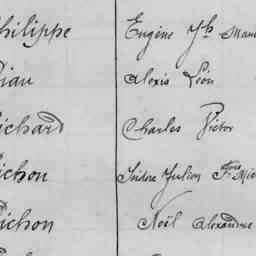 hilippe Eugène Jh
Alexis Léon
ichard Charles Victor
ichon Isidore Julien Fs
ichon Noël Alexandre